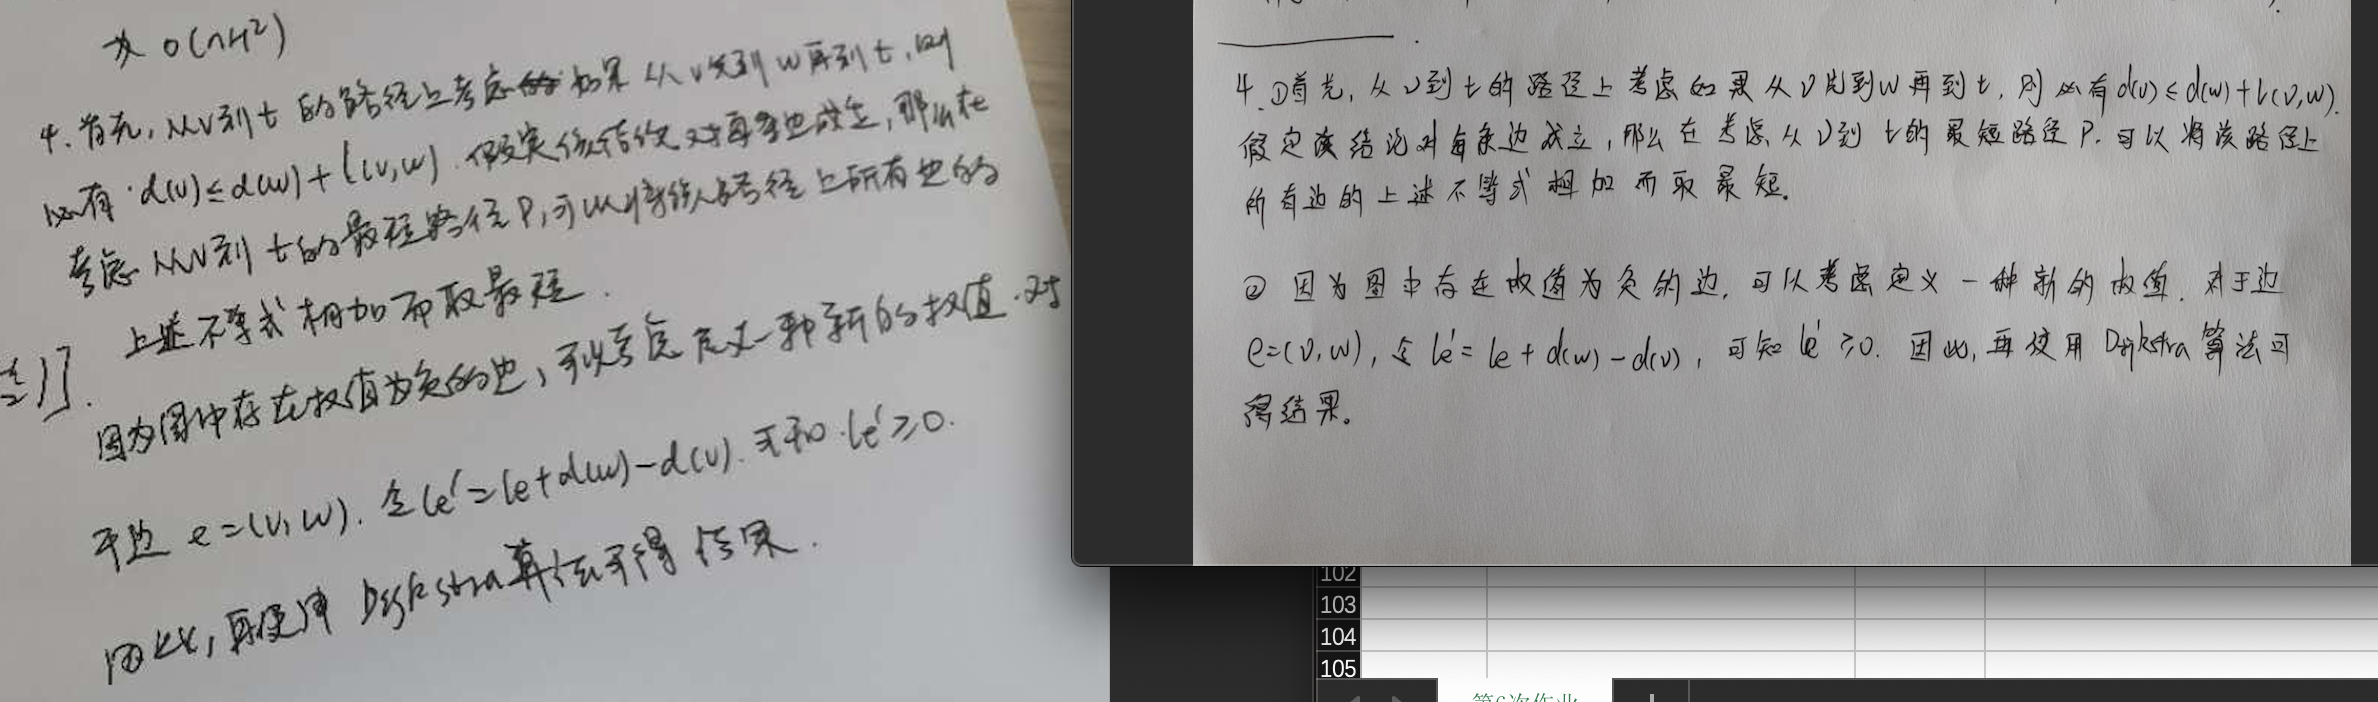 为 O(n+1²)
4. 首先, 从v到t的路径上考虑 如果从v先到w再到t, 则
必有 d(v)≤d(w)+l(v,w). 假定该结论对每条边成立, 那么在
考虑从v到t的最短路径P, 可以将该路径上所有边的
上述不等式相加而取最短.
因为图中存在权值为负的边, 可以考虑定义一种新的权值. 对
于边 e=(v,w). 令le'=le+d(w)-d(v). 可知 le'≥0.
因此, 再使用 Dijkstra算法可得结果.
4. ①首先, 从v到t的路径上考虑如果从v先到w再到t, 则必有d(v)≤d(w)+l(v,w).
假定该结论对每条边成立, 那么在考虑从v到t的最短路径P. 可以将该路径上
所有边的上述不等式相加而取最短。
② 因为图中存在权值为负的边, 可以考虑定义一种新的权值. 对于边
e=(v,w), 令le'=le+d(w)-d(v), 可知le'≥0. 因此, 再使用Dijkstra算法可
得结果。
102
103
104
105
第6次作业